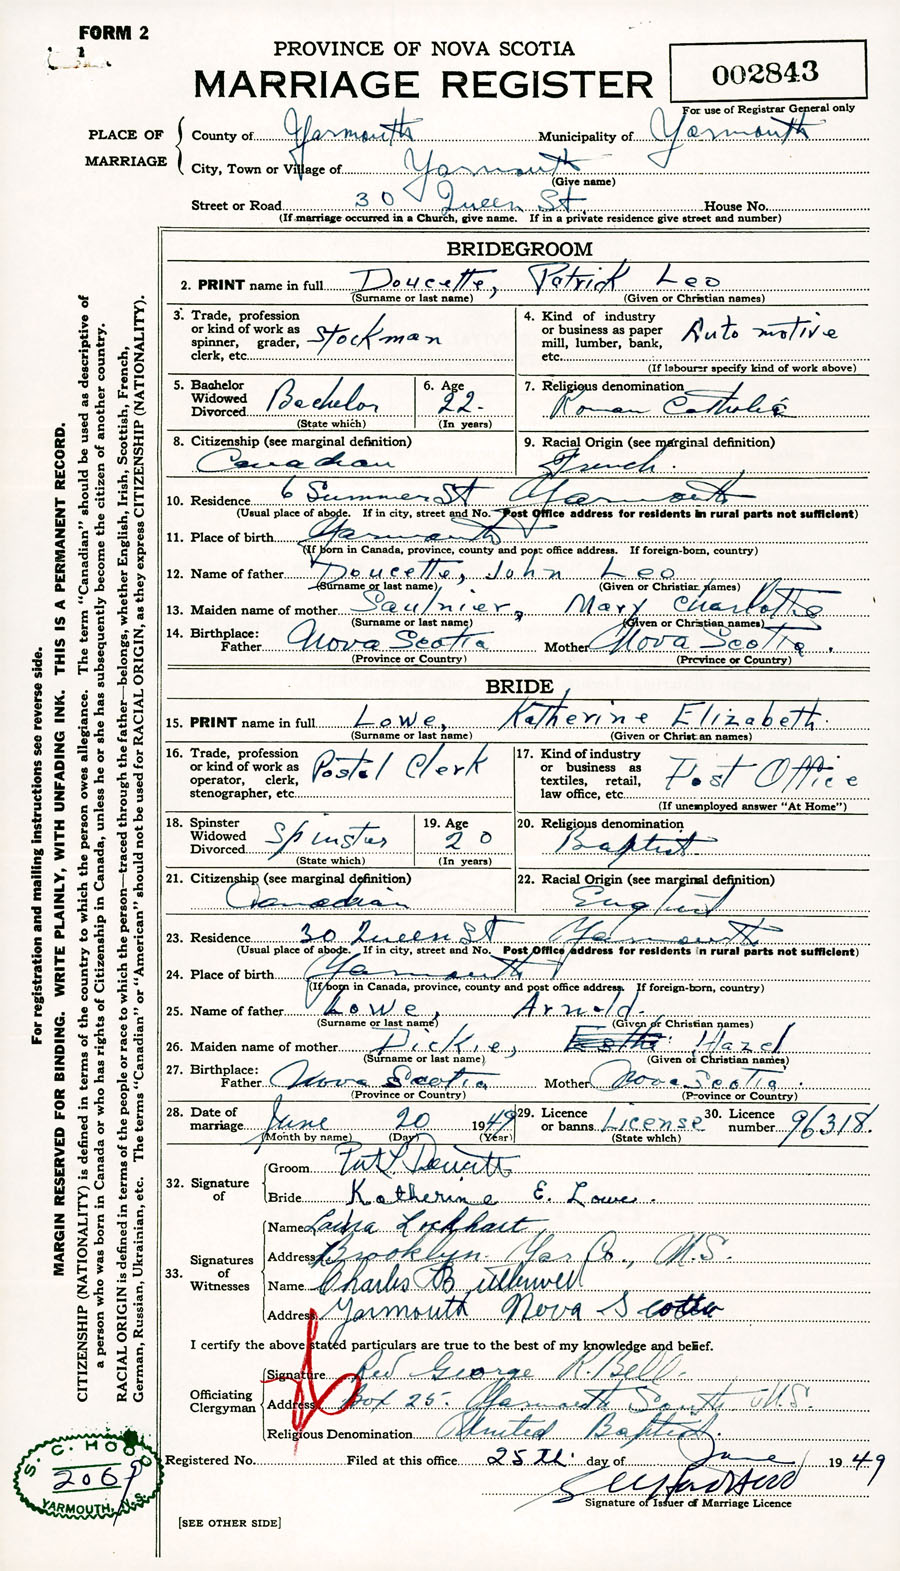 FORM 2
PROVINCE OF NOVA SCOTIA
MARRIAGE REGISTER
002843
For use of Registrar General only
PLACE OF MARRIAGE
County of Yarmouth Municipality of Yarmouth
City, Town or Village of Yarmouth
(Give name)
Street or Road 30 Queen St. House No.
(If marriage occurred in a Church, give name. If in a private residence give street and number)
BRIDEGROOM
2. PRINT name in full Doucette, Patrick Leo
(Surname or last name) (Given or Christian names)
3. Trade, profession or kind of work as spinner, grader, clerk, etc. Stockman
4. Kind of industry or business as paper mill, lumber, bank, etc. Automotive
(If labourer specify kind of work above)
5. Bachelor Widowed Divorced Bachelor
(State which)
6. Age 22.
(In years)
7. Religious denomination
Roman Catholic
8. Citizenship (see marginal definition)
Canadian
9. Racial Origin (see marginal definition)
French.
10. Residence 6 Summer St Yarmouth
(Usual place of abode. If in city, street and No. Post Office address for residents in rural parts not sufficient)
11. Place of birth Yarmouth
(If born in Canada, province, county and post office address. If foreign-born, country)
12. Name of father Doucette, John Leo
(Surname or last name) (Given or Christian names)
13. Maiden name of mother Saulnier, Mary Charlotte
(Surname or last name) (Given or Christian names)
14. Birthplace: Father Nova Scotia Mother Nova Scotia.
(Province or Country) (Province or Country)
BRIDE
15. PRINT name in full Lowe, Katherine Elizabeth.
(Surname or last name) (Given or Christian names)
16. Trade, profession or kind of work as operator, clerk, stenographer, etc. Postal Clerk
17. Kind of industry or business as textiles, retail, law office, etc. Post Office
(If unemployed answer "At Home")
18. Spinster Widowed Divorced Spinster
(State which)
19. Age 20
(In years)
20. Religious denomination
Baptist
21. Citizenship (see marginal definition)
Canadian
22. Racial Origin (see marginal definition)
23. Residence 30 Queen St Yarmouth
(Usual place of abode. If in city, street and No. Post Office address for residents in rural parts not sufficient)
24. Place of birth Yarmouth
(If born in Canada, province, county and post office address. If foreign-born, country)
25. Name of father Lowe, Arnold.
(Surname or last name) (Given of Christian names)
26. Maiden name of mother Dickie, Hazel
(Surname or last name) (Given of Christian names)
27. Birthplace: Father Nova Scotia Mother Nova Scotia.
(Province or Country) (Province or Country)
28. Date of marriage June 20 1949
(Month by name) (Day) (Year)
29. Licence or banns License
(State which)
30. Licence number 96318.
32. Signature of
Groom
Bride Katherine E. Lowe.
33. Signatures of Witnesses
Name Laura Lockhart
Address Brooklyn. Yar Co., N.S.
Name Charles B
Address Yarmouth Nova Scotia
I certify the above stated particulars are true to the best of my knowledge and belief.
Officiating Clergyman
Signature Rev George R. Bell.
Address Box 25. Yarmouth South N.S.
Religious Denomination United Baptist.
Registered No. Filed at this office 25th. day of June 1949
Signature of Issuer of Marriage Licence
[SEE OTHER SIDE]
S. C. HOOD
2069
YARMOUTH, N.S.
For registration and mailing instructions see reverse side.
MARGIN RESERVED FOR BINDING. WRITE PLAINLY, WITH UNFADING INK. THIS IS A PERMANENT RECORD.
CITIZENSHIP (NATIONALITY) is defined in terms of the country to which the person owes allegiance. The term "Canadian" should be used as descriptive of
a person who was born in Canada or who has rights of Citizenship in Canada, unless he or she has subsequently become the citizen of another country.
RACIAL ORIGIN is defined in terms of the people or race to which the person—traced through the father—belongs, whether English, Irish, Scottish, French,
German, Russian, Ukrainian, etc. The terms "Canadian" or "American" should not be used for RACIAL ORIGIN, as they express CITIZENSHIP (NATIONALITY).